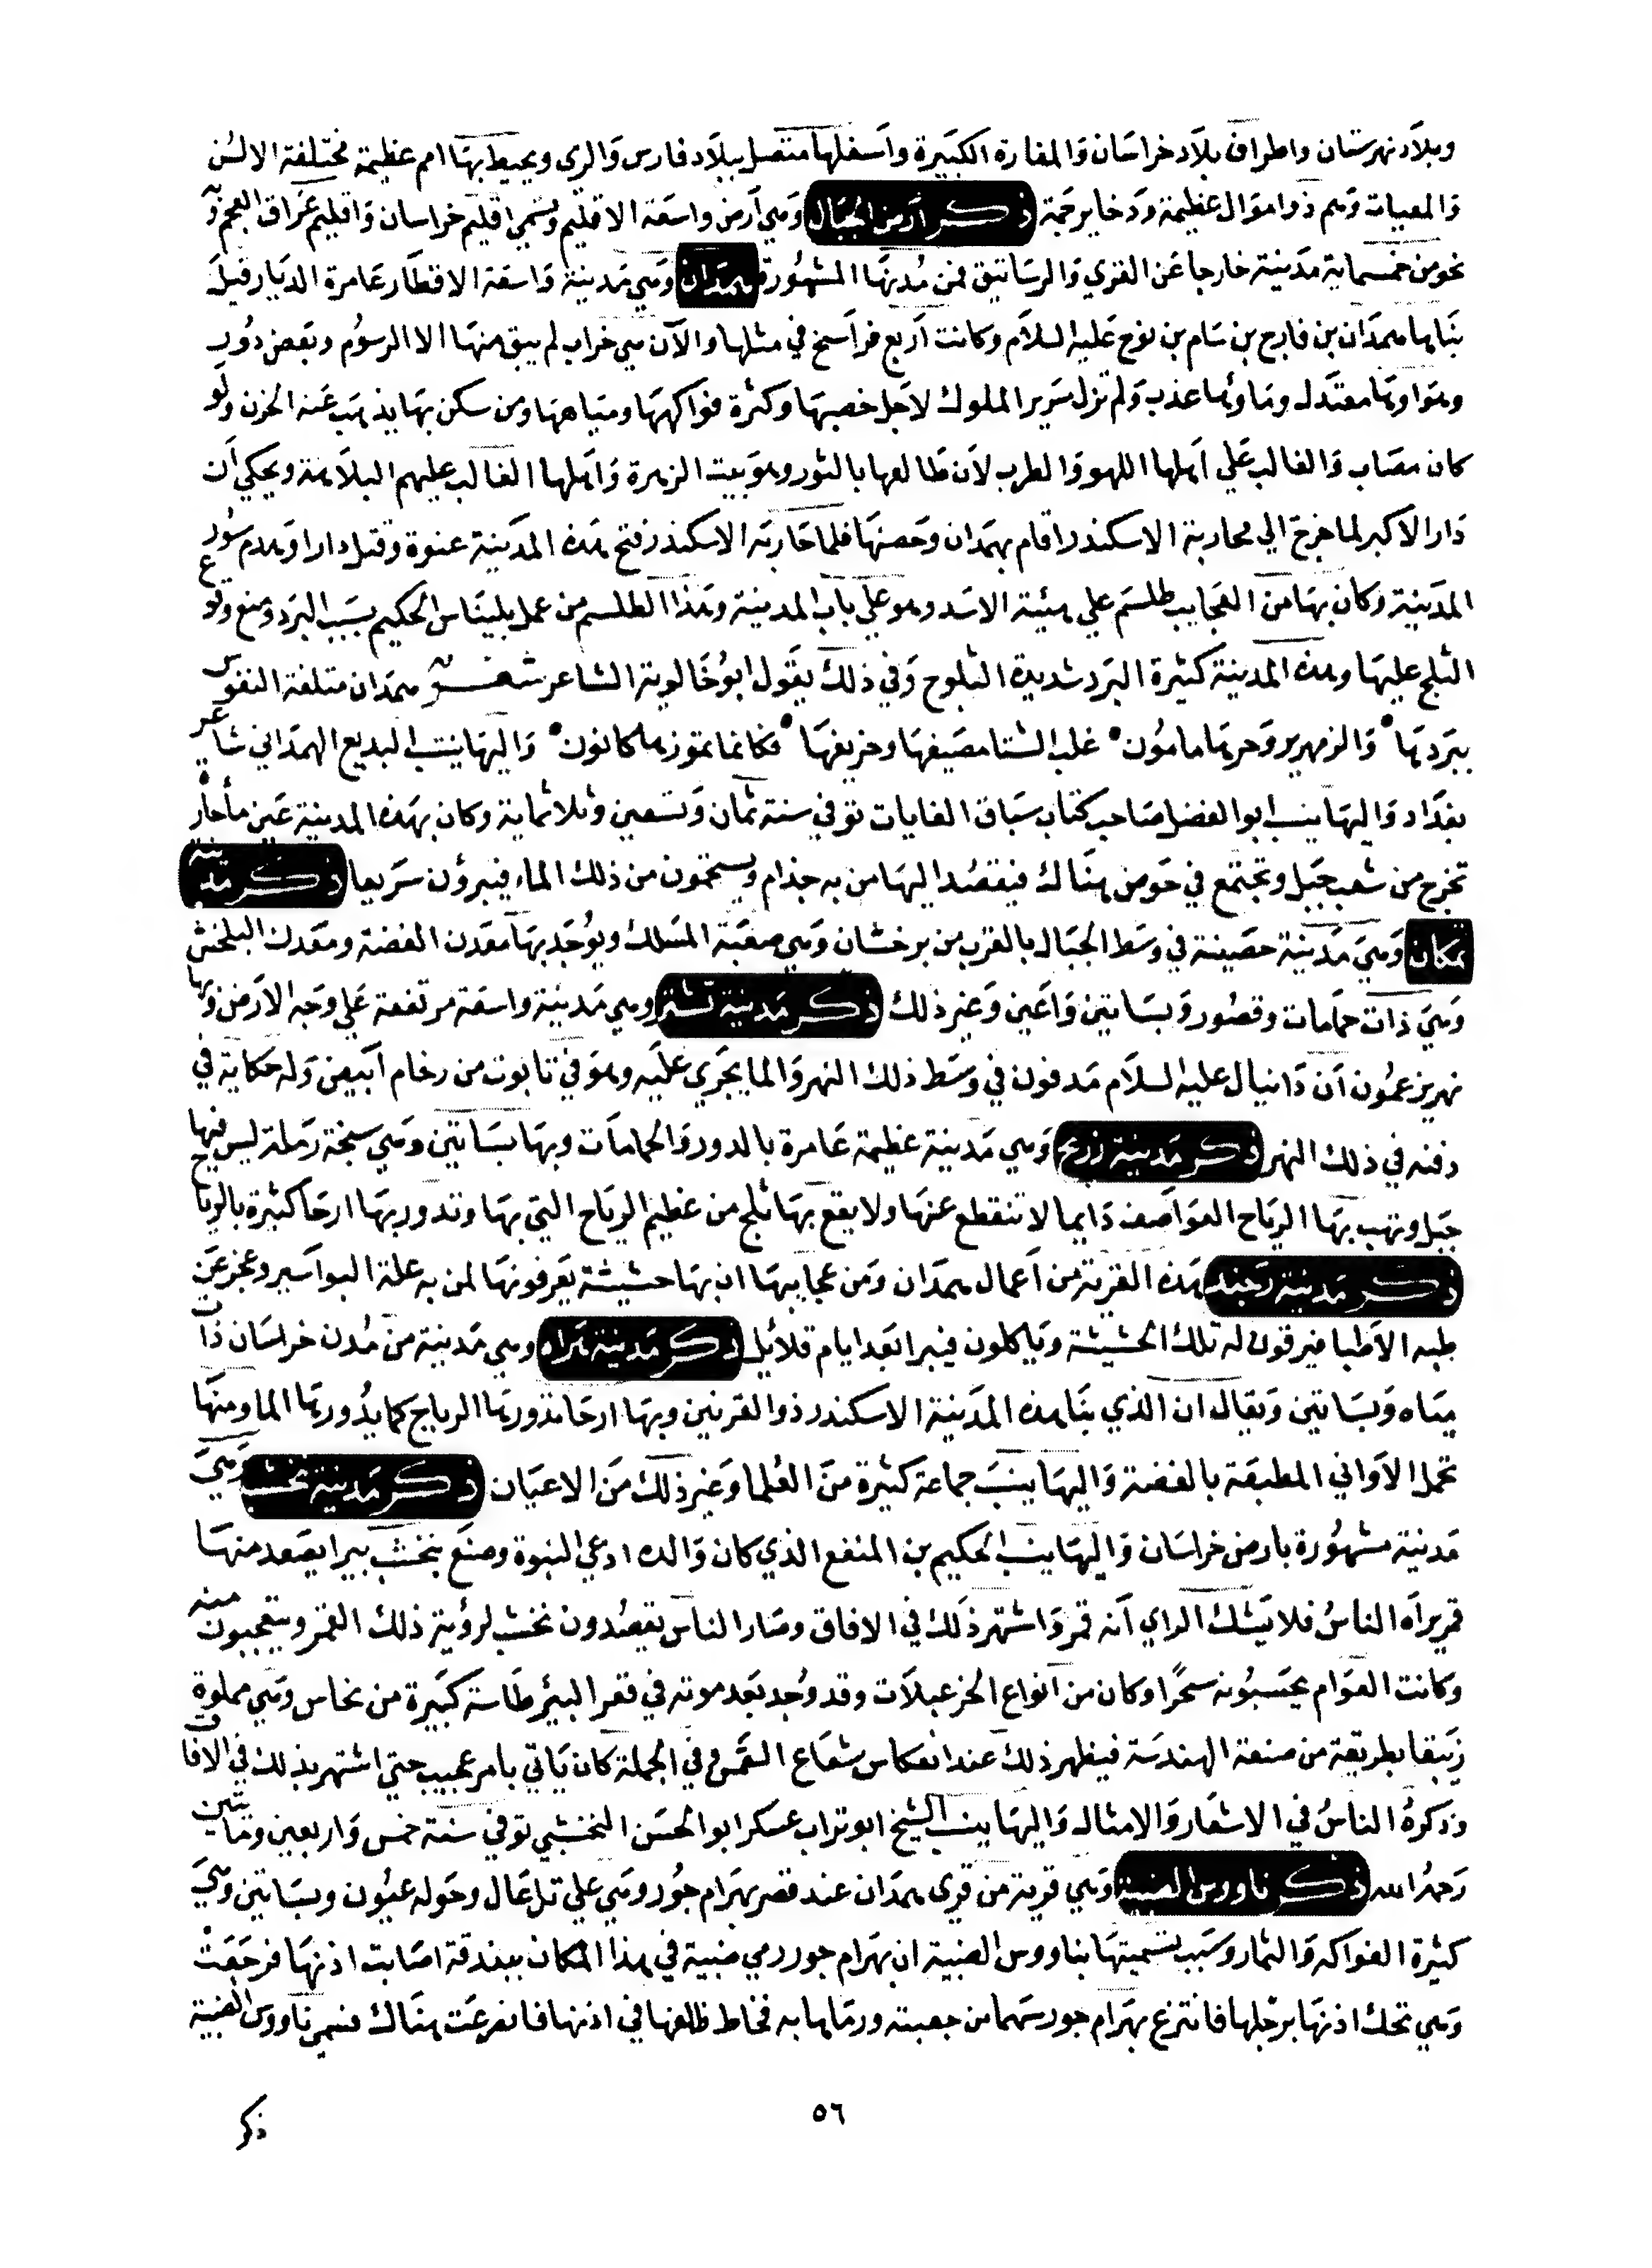 وبلاد نهرستان واطراف بلاد خراسان والمفازة الكبيرة واسفلها متصل ببلاد فارس والري ويحيط بها امم عظيمة مختلفة الالسن
والهيات وهم ذوا موال عظيمة ودخاير جمة ذكر ارض الجبال وهي ارض واسعة الاقليم وتسمي اقليم خراسان واقليم عراق العجم وبه
نحو من خمسماية مدينة خارجا عن القري والرساتيق فمن مدنها المشهورة همدان وهي مدينة واسعة الاقطار عامرة الديار قيل
بناها همدان بن فارح بن سام بن نوح عليه السلام وكانت اربع فراسخ في مثلها والآن هي خراب لم يبق منها الا الرسوم وبعض دور
وهواوها معتدل وماوها عذب ولم تزل سرير الملوك لاجل خصبها وكثرة فواكهها ومياهها ومن سكن بها يذهب عنه الحزن ولو
كان مصاب والغالب علي اهلها اللهو والطرب لان طالعها بالثور وهو بيت الزهرة واهلها الغالب عليهم البلاهة ويحكي أن
دارا الاكبر لما خرج الي محاربة الاسكندر اقام بهمدان وحصنها فلما حاربه الاسكندر فتح هذه المدينة عنوة وقتل دارا وهدم سور
المدينة وكان بها من العجايب طلسم علي هيئة الاسد وهو علي باب المدينة وهذا الطلسم من عمل بليناس الحكيم بسبب البرد ومنع وقوع
الثلج عليها وهذه المدينة كثيرة البرد شديدة الثلوج وفي ذلك يقول ابو خالويه الشاعر شعر همدان متلفة النفوس
ببردها والزمهرير وحرها مامون غلب الشتا مصيفها وخريفها فكانما تموزها كانون واليها ينسب البديع الهمداني شاعر
بغداد واليها ينسب ابو الفضل صاحب كتاب سباق الغايات توفي سنة ثمان وتسعين وثلاثماية وكان بهذه المدينة عين ما حار
تخرج من شعب جبل وتجتمع في حوض هناك فيقصد اليها من به جذام ويستحمون من ذلك الماء فيبرؤن سريعا ذكر مدينة
يمكان وهي مدينة حصينة في وسط الجبال بالقرب من برخشان وهي صعبة المسلك ويوجد بها معدن الفضة ومعدن البلخش
وهي ذات حمامات وقصور وبساتين واعين وغير ذلك ذكر مدينة تشتر وهي مدينة واسعة مرتفعة علي وجه الارض وبها
نهر يزعمون أن دانيال عليه السلام مدفون في وسط ذلك النهر والما يجري عليه وهو في تابوت من رخام ابيض وله حكاية في
دفنه في ذلك النهر ذكر مدينة زرنج وهي مدينة عظيمة عامرة بالدور والحمامات وبها بساتين وهي سبخة رملة ليس فيها
جبل وتهب بها الرياح العواصف دايما لا تنقطع عنها ولا يقع بها ثلج من عظيم الرياح التي بها وتدور بها ارحا كثيرة بالرياح
ذكر مدينة هذه القرية من اعمال همدان ومن عجايبها ان بها حشيشة يعرفونها لمن به علة البواسير وعجز عن
طبه الاطبا فيرقون له تلك الحشيشة وياكلون فيبرا بعد ايام قلائل ذكر مدينة هراه وهي مدينة من مدن خراسان ذات
مياه وبساتين ويقال ان الذي بنا هذه المدينة الاسكندر ذو القرنين وبها ارحا تدورها الرياح كما يدورها الما ومنها
تحمل الاواني المطبقة بالفضة واليها ينسب جماعة كثيرة من العلما وغير ذلك من الاعيان ذكر مدينة نخشب وهي
مدينة مشهورة بارض خراسان واليها ينسب الحكيم بن المنفع الذي كان والده ادعي النبوة وصنع بنخشب بيرا يصعد منها
قمر يراه الناس فلا يشك الراي انه قمر واشتهر ذلك في الافاق وصار الناس يقصدون نخشب لرؤية ذلك القمر ويتعجبون منه
وكانت العوام يحسبونه سحرا وكان من انواع الخزعبلات وقد وجد بعد موته في قعر البير طاسة كبيرة من نحاس وهي مملوة
زيبقا بطريقة من صنعة الهندسة فيظهر ذلك عند انعكاس شعاع الشمس وفي الجملة كان ياتي بامر عجيب حتي اشتهر بذلك في الافاق
وذكره الناس في الاشعار والامثال واليها ينسب الشيخ ابو تراب عسكر ابو الحسن النخشبي توفي سنة خمس واربعين ومايتين
رحمه الله ذكر ناووس الضبية وهي قرية من قري همدان عند قصر بهرام جور وهي علي تل عال وحوله عيون وبساتين وهي
كثيرة الفواكه والثمار وسبب تسميتها بناووس الضبية ان بهرام جور رمي ضبية في هذا المكان ببندقة اصابت اذنها فرجعت
وهي تحك اذنها برجلها فانتزع بهرام جور سهما من جعبته ورماها به فخاط ظلفها في اذنها فانفرعت هناك فسمي ناووس الضبية
٥٦
ذكر